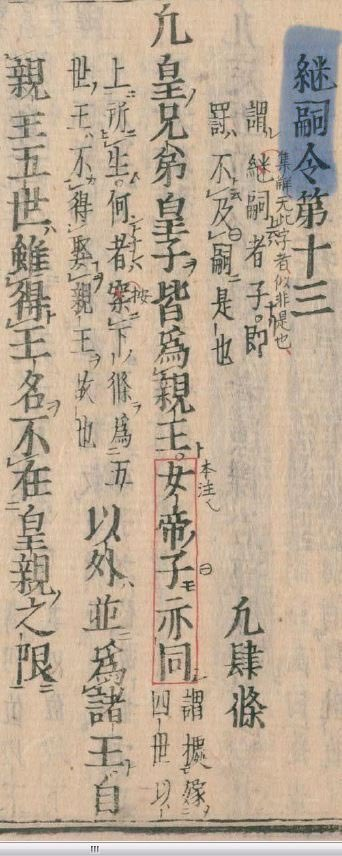 継嗣令第十三
集解无此字者似非是也
謂継嗣者子即
罸不及嗣是也
凢肆條
凢皇兄弟皇子皆為親王女帝子亦同
本注
謂據嫁
四世以
上所生何者案下條為五
按
世王不得娶親王故也
以外並為諸王自
親王五世雖得王名不在皇親之限